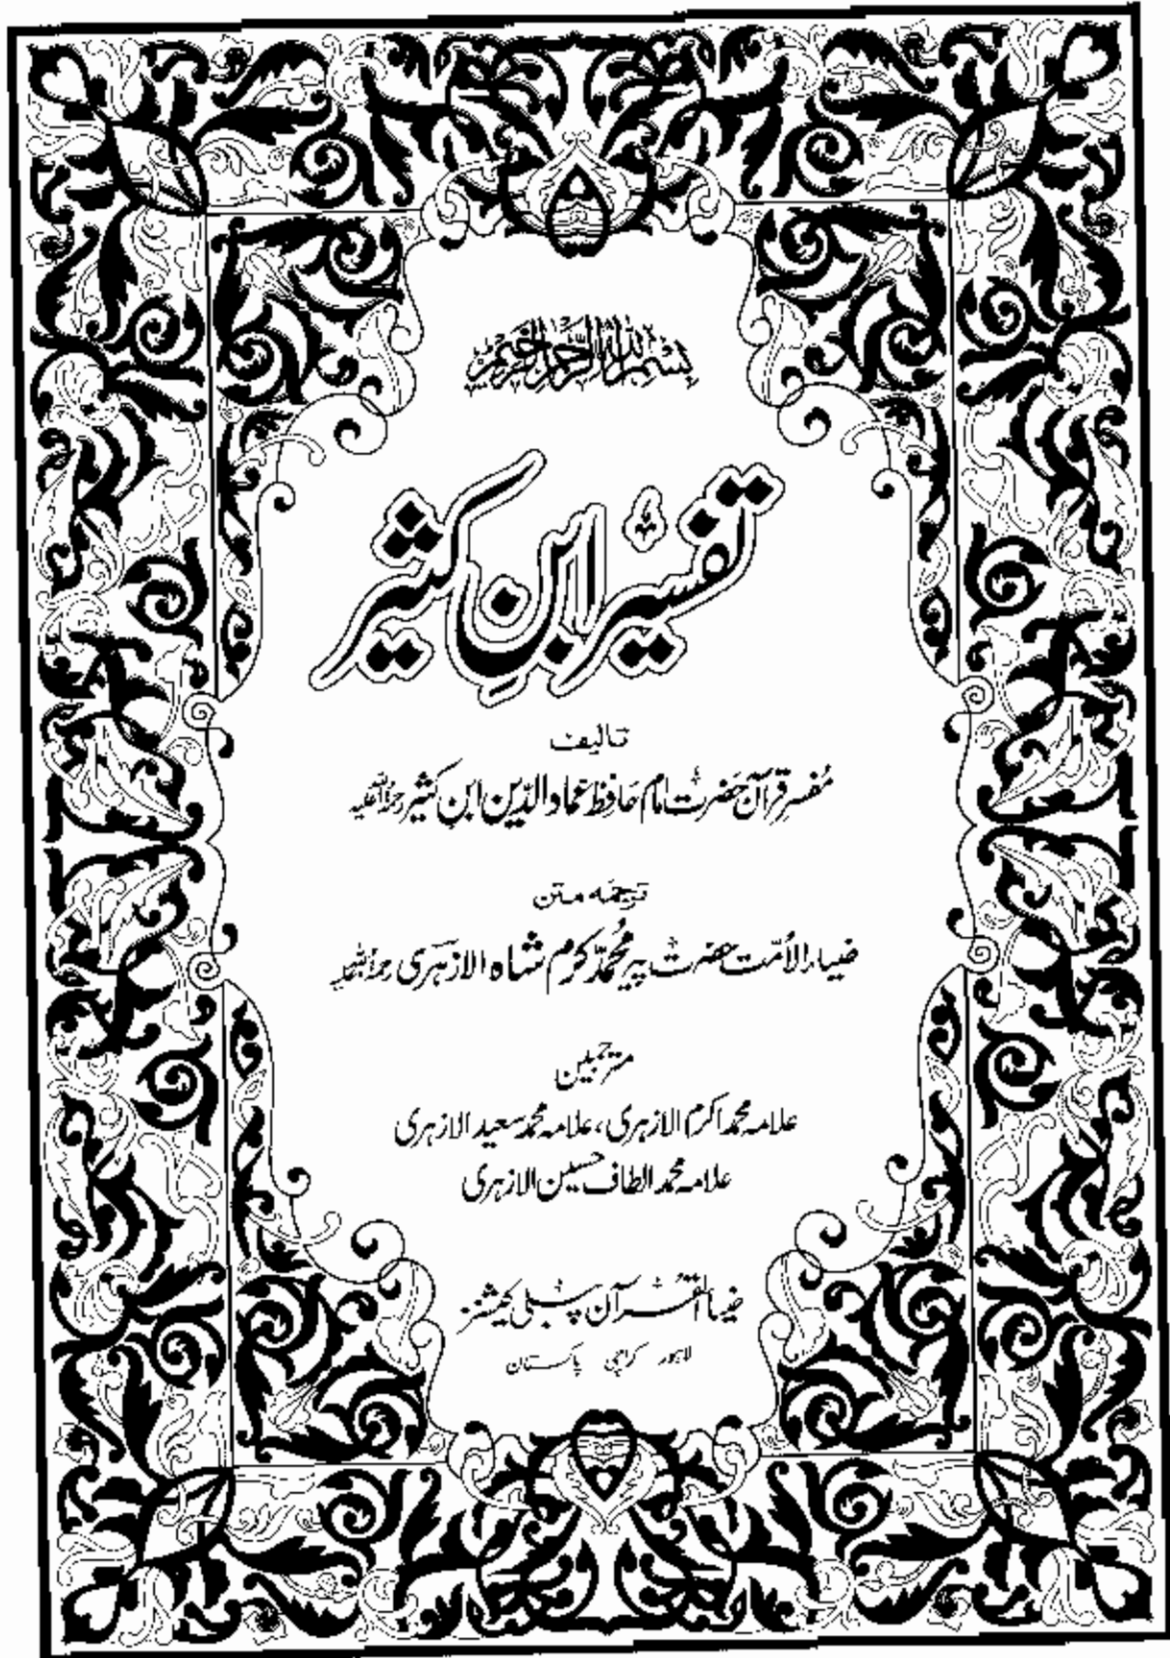 بِسْمِ اللهِ الرَّحْمٰنِ الرَّحِيْمِ
تفسیر ابنِ کثیر
تالیف
مُفسرِ قرآن حضرت امام حَافظ عماد الدّین ابنِ کثیر رحمۃ اللہ علیہ
ترجمہ متن
ضیاء الاُمّت حضرت پیر مُحمّد کرم شاہ الازہری رحمۃ اللہ علیہ
مترجمین
علامہ محمد اکرم الازہری، علامہ محمد سعید الازہری
علامہ محمد الطاف حسین الازہری
ضیاء القرآن پبلی کیشنز
لاہور کراچی پاکستان